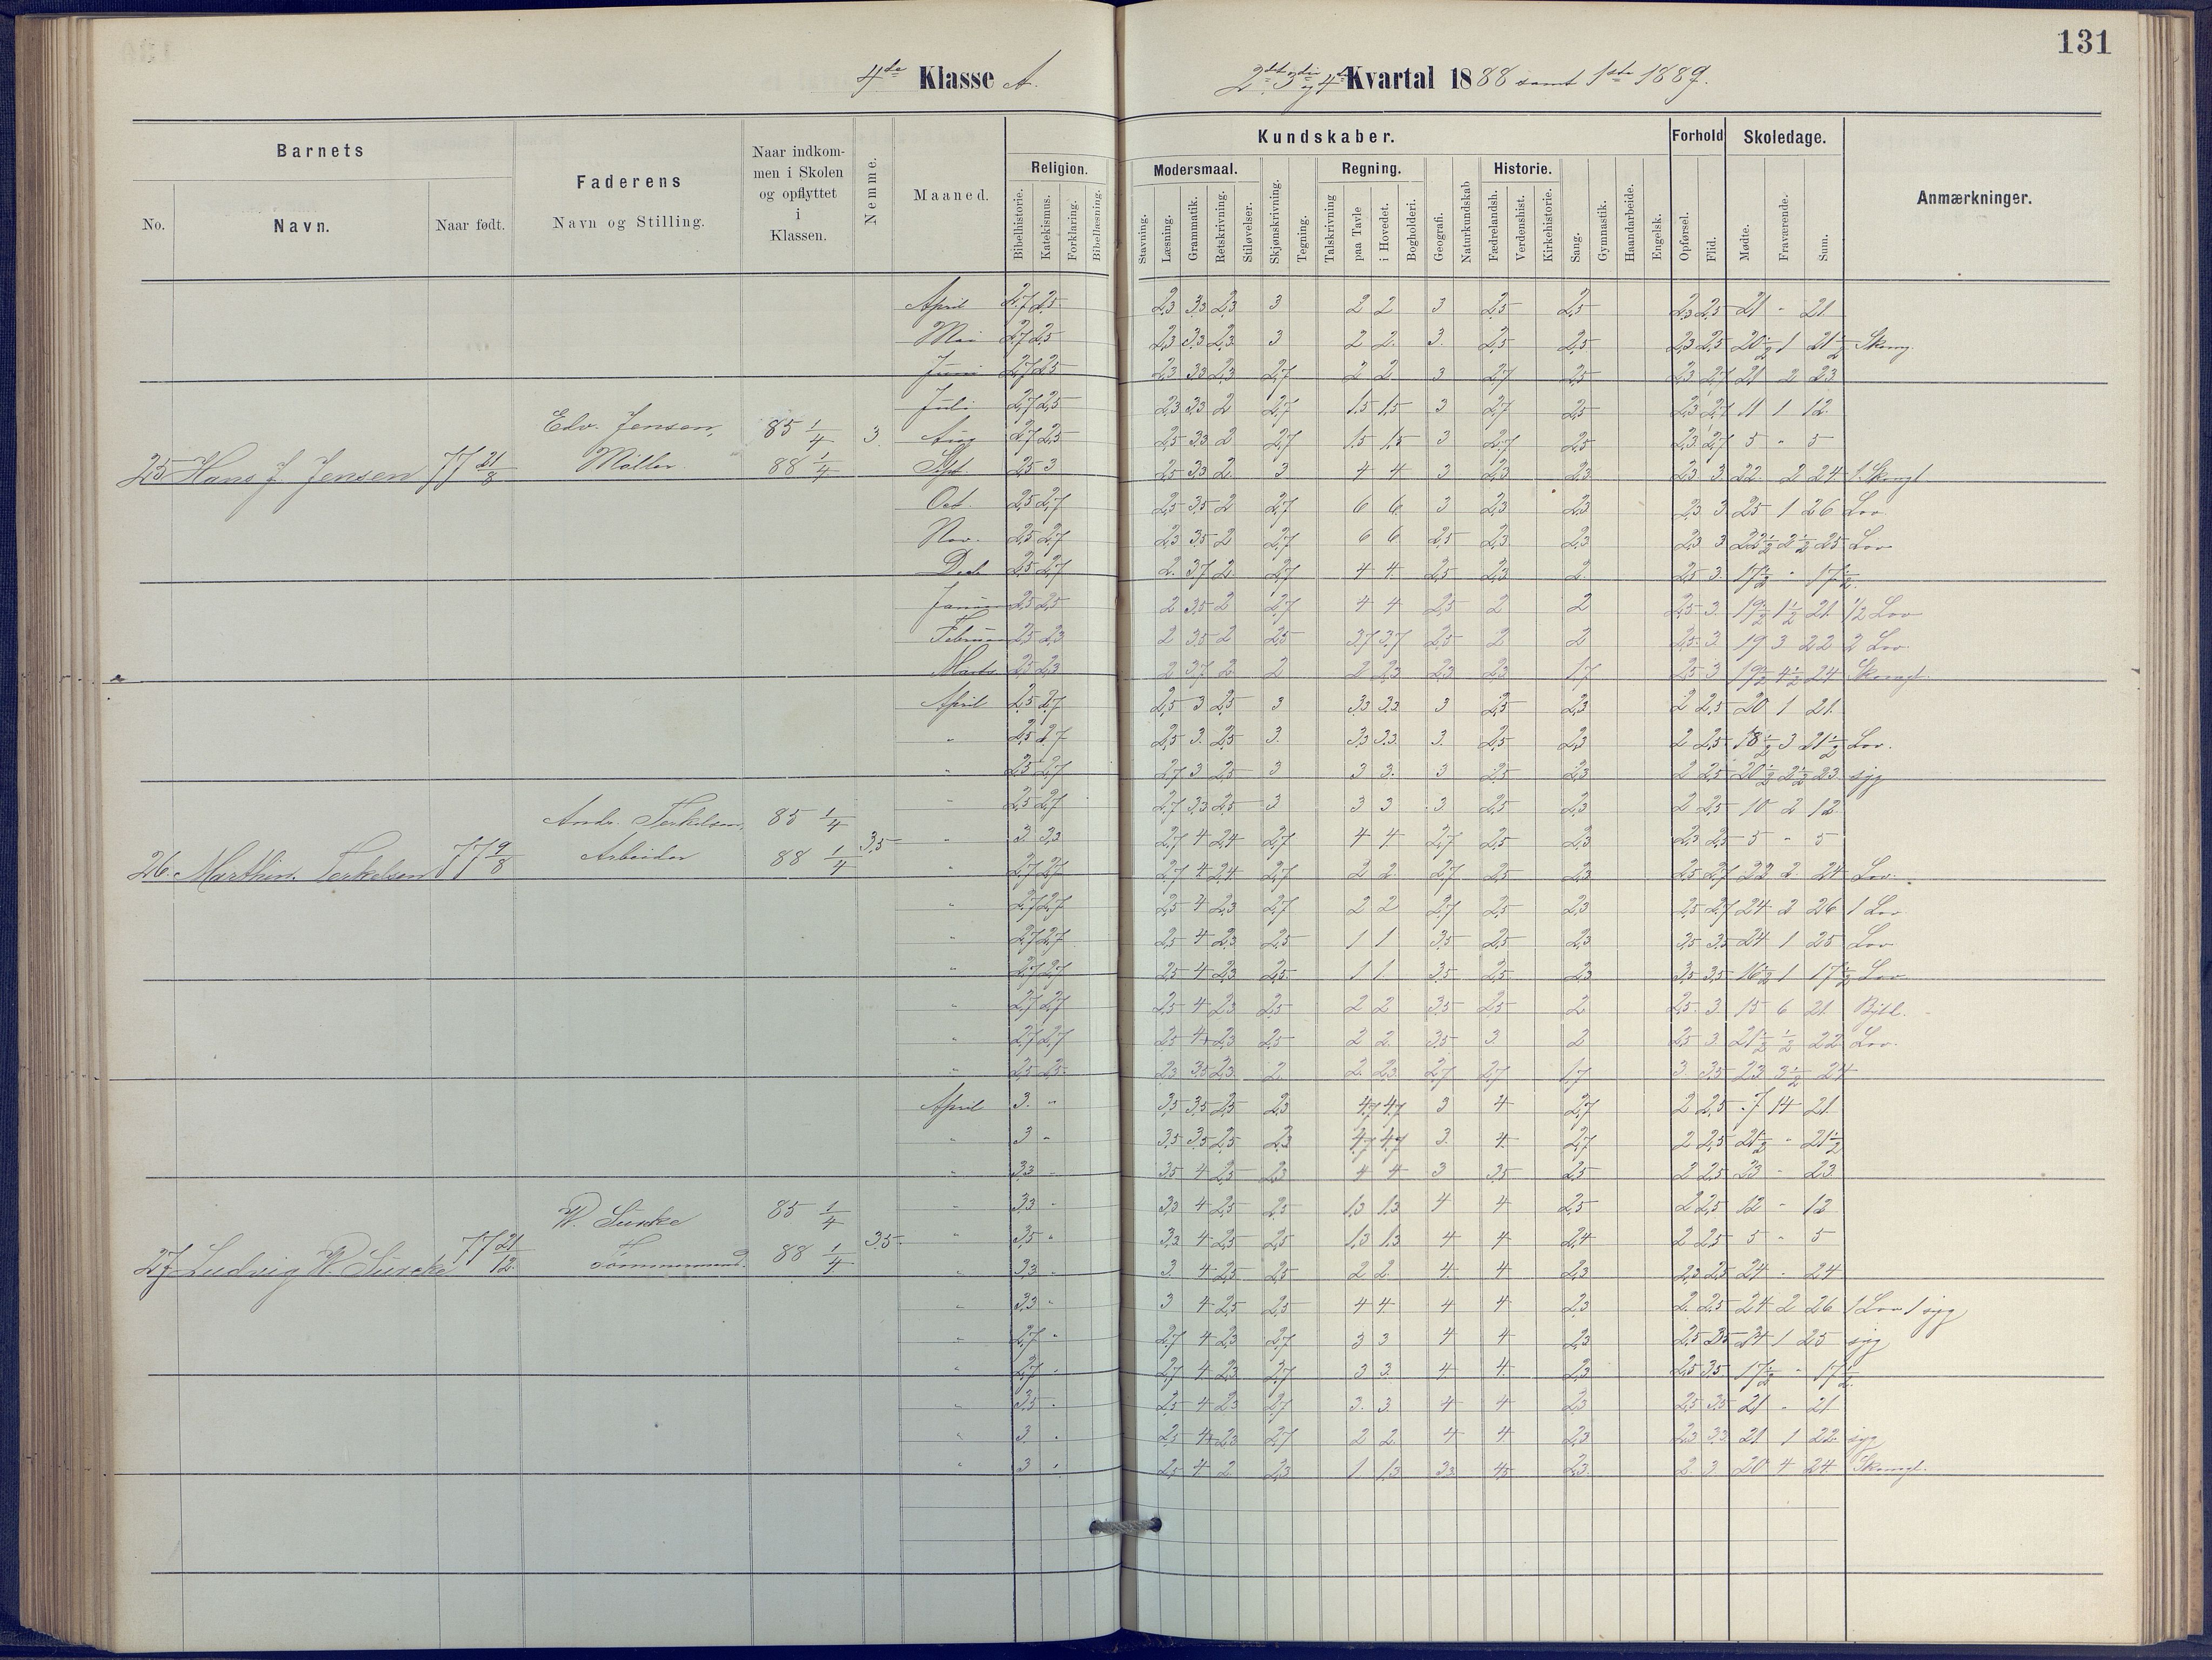 131
4de Klasse A.
2det 3die og 4de Kvartal 1888 samt 1ste 1889.
Barnets
No.
Navn.
Naar født.
Faderens
Navn og Stilling.
Naar indkom-
men i Skolen
og opflyttet
i
Klassen.
Nemme.
Maaned.
Kundskaber.
Religion.
Bibelhistorie.
Katekismus.
Forklaring.
Bibellæsning.
Modersmaal.
Stavning.
Læsning.
Grammatik.
Retskrivning.
Stiløvelser.
Skjønskrivning.
Tegning.
Regning.
Talskrivning
paa Tavle
i Hovedet.
Bogholderi.
Geografi.
Naturkundskab
Historie.
Fædrelandsh.
Verdenshist.
Kirkehistorie.
Sang.
Gymnastik.
Haandarbeide.
Engelsk.
Forhold
Opførsel.
Flid.
Skoledage.
Mødte.
Fraværende.
Sum.
Anmærkninger.
25 Hans J. Jensen 77 21/8 Edv. Jensen, Møller. 85 1/4 88 1/4 3.
April 2,7 2,5 2,3 3,3 2,3 3 2 2 3 2,5 2,5 2,3 2,5 21 - 21
Mai 2,7 2,5 2,3 3,3 2,3 3 2 2. 3. 2,5 2,5 2,3 2,5 20 1/2 1 21 1/2
Juni 2,7 2,5 2,3 3,3 2,3 2,7 2 2 3 2,7 2,5 2,3 2,7 21 2 23
Juli 2,7 2,5 2,3 3,3 2 2,7 1,5 1,5 3 2,7 2,5 2,3 2,7 11 1 12.
Aug 2,7 2,5 2,5 3,3 2 2,7 1,5 1,5 3 2,7 2,5 2,3 2,7 5 - 5
Sept. 2,5 3 2,5 3,3 2. 3. 4 4 3 2,3 2,3 2,3 3 22. 2 24
Oct. 2,5 2,7 2,5 3,5 2 2,7 6 6 3 2,3 2,3 2,3 3 25 1 26 Lov
Nov. 2,5 2,7 2,3 3,5 2 2,7 6 6 2,5 2,3 2,3 2,3 3 22 1/2 2 1/2 25 Lov
Decb 2,5 2,7 2. 3,7 2. 2,7 4 4. 2,5 2,3 2. 2,5 3. 17 1/2 - 17 1/2
Januar 2,5 2,5 2 3,5 2 2,7 4 4 2,5 2 2 2,5 3. 19 1/2 1 1/2 21 1/2 Lov
Februar 2,5 2,3 2 3,5 2 2,5 3,7 3,7 2,5 2 2 2,5 3 19 3 22 2 Lov.
Marts 2,5 2,3 2 3,7 2 2 2 2,3 2,3 2,3 1,7 2,5 3 19 1/2 4 1/2 24
26. Marthin. Terkelsen 77 9/8 Andr. Terkelsen, Arbeider 85 1/4 88 1/4 3,5
April 2,5 2,7 2,5 3 2,5 3 3,3 3,3 3 2,5 2,3 2 2,5 20 1 21.
" 2,5 2,7 2,5 3. 2,5 3. 3,3 3,3 3. 2,5 2,3 2 2,5 18 1/2 3 21 1/2 Lov.
" 2,5 2,7 2,7 3 2,5 3 3 3. 3 2,5 2,3 2 2,5 20 1/2 2 1/2 23 syg
" 2,5 2,7 2,7 3,3 2,5 3 3 3 3 2,5 2,3 2 2,5 10 2 12
" 3 3,3 2,7 4 2,4 2,7 4 4 2,7 2,5 2,3 2,3 2,5 5 - 5
" 2,7 2,7 2,7 4 2,4 2,7 2 2. 2,7 2,5 2,3 2,5 2,7 22 2 24 Lov.
" 2,7 2,7 2,5 4 2,3 2,7 2 2 2,7 2,5 2,3 2,5 2,7 24 2 26 1 Lov
" 2,7 2,7 2,5 4 2,3 2,5 1 1 3,5 2,5 2,3 3,5 3,5 24 1 25 Lov
" 2,7 2,7 2,5 4 2,3 2,5. 1 1. 3,5 2,5 2,3 3,5 3,5 16 1/2 1 17 1/2 Lov
" 2,7 2,7 2,5 4 2,3 2,5 2 2 3,5 2,5 2 2,5 3 15 6 21
" 2,7 2,7 2,5 4 2,3 2,5 2 2. 3,5 3. 2 2,5 3 21 1/2 1/2 22 Lov.
" 2,5 2,5 2,3 3,5 2,3 2. 2. 2,3 2,7 2,7 1,7 3 3,5 23 3 1/2 24
27 Ludvig 77 21/12. Tømmermand. 85 1/4 88 1/4 3,5.
April 3. " 3,5 3,5 2,5 2,3 4,7 4,7 3 4 2,7 2 2,5 7 14 21.
" 3 " 3,5 3,5 2,5 2,3 4,7 4,7 3. 4. 2,7 2 2,5 21 1/2 - 21 1/2
" 3,3 " 3,5 4 2,5 2,3 4 4 3 3,5 2,5 2 2,5 23 - 23
" 3,3 " 3,3 4 2,5 2,5 1,3 1,3 4 4 2,5 2 2,5 12 - 12
" 3,5 " 3,3 4 2,5 2,5 1,3 1,3 4 4 2,4 2 2,5 5 - 5
" 3,3 " 3. 4 2,5 2,5 2 2. 4. 4 2,3 2,3 2,5 24 - 24
" 3,3 " 3 4 2,5 2,5 4 4. 4 4 2,3 2. 2,5 24 2 26 1 Lov 1 syg
" 2,7 " 2,7 4 2,3 2,7 3 3 4 4 2,3 2,5 3,5 24 1 25 syg
" 2,7 " 2,7 4 2,3 2,7 3 3. 4 4. 2,3 2,5 3,5 17 1/2 - 17 1/2
" 3,5 " 2,5 4 2,3 2,7 3. 3. 4 4 2,3 2,5 3,5 21 - 21
" 3 " 2,5 4 2,3 2,7 2 2. 4 4 2,3 2,3 3,3 21 1 22 syg
" 3 " 2,5 4 2 2,3 1 1,3 3,3 4,5 2,3 2. 3 20 4 24